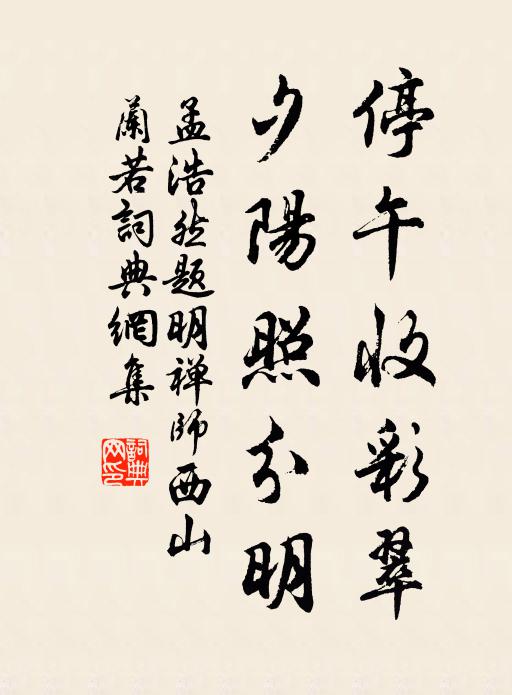 停午收彩翠
夕陽照分明
孟浩然题明禅师西山
蘭若詞典網集
詞典网印